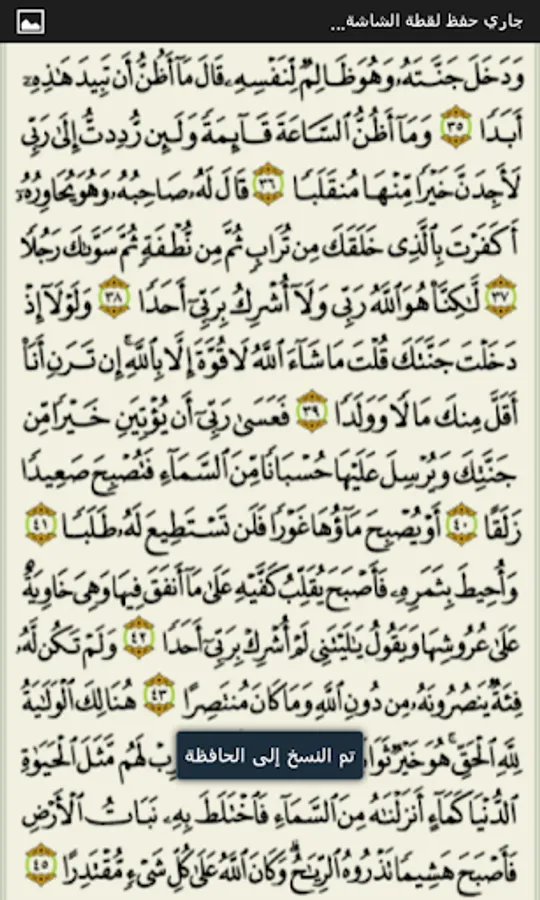 جاري حفظ لقطة الشاشة...
وَدَخَلَ جَنَّتَهُۥ وَهُوَ ظَالِمٌ لِّنَفْسِهِۦ قَالَ مَآ أَظُنُّ أَن تَبِيدَ هَٰذِهِۦٓ
أَبَدًا ٣٥ وَمَآ أَظُنُّ ٱلسَّاعَةَ قَآئِمَةً وَلَئِن رُّدِدتُّ إِلَىٰ رَبِّى
لَأَجِدَنَّ خَيْرًا مِّنْهَا مُنقَلَبًا ٣٦ قَالَ لَهُۥ صَاحِبُهُۥ وَهُوَ يُحَاوِرُهُۥٓ
أَكَفَرْتَ بِٱلَّذِى خَلَقَكَ مِن تُرَابٍ ثُمَّ مِن نُّطْفَةٍ ثُمَّ سَوَّىٰكَ رَجُلًا
٣٧ لَّٰكِنَّا۠ هُوَ ٱللَّهُ رَبِّى وَلَآ أُشْرِكُ بِرَبِّىٓ أَحَدًا ٣٨ وَلَوْلَآ إِذْ
دَخَلْتَ جَنَّتَكَ قُلْتَ مَا شَآءَ ٱللَّهُ لَا قُوَّةَ إِلَّا بِٱللَّهِ ۚ إِن تَرَنِ أَنَا۠
أَقَلَّ مِنكَ مَالًا وَوَلَدًا ٣٩ فَعَسَىٰ رَبِّىٓ أَن يُؤْتِيَنِ خَيْرًا مِّن
جَنَّتِكَ وَيُرْسِلَ عَلَيْهَا حُسْبَانًا مِّنَ ٱلسَّمَآءِ فَتُصْبِحَ صَعِيدًا
زَلَقًا ٤٠ أَوْ يُصْبِحَ مَآؤُهَا غَوْرًا فَلَن تَسْتَطِيعَ لَهُۥ طَلَبًا ٤١
وَأُحِيطَ بِثَمَرِهِۦ فَأَصْبَحَ يُقَلِّبُ كَفَّيْهِ عَلَىٰ مَآ أَنفَقَ فِيهَا وَهِىَ خَاوِيَةٌ
عَلَىٰ عُرُوشِهَا وَيَقُولُ يَٰلَيْتَنِى لَمْ أُشْرِكْ بِرَبِّىٓ أَحَدًا ٤٢ وَلَمْ تَكُن لَّهُۥ
فِئَةٌ يَنصُرُونَهُۥ مِن دُونِ ٱللَّهِ وَمَا كَانَ مُنتَصِرًا ٤٣ هُنَالِكَ ٱلْوَلَٰيَةُ
لِلَّهِ ٱلْحَقِّ ۚ هُوَ خَيْرٌ ثَوَا رِبْ لَهُم مَّثَلَ ٱلْحَيَوٰةِ
تم النسخ إلى الحافظة
ٱلدُّنْيَا كَمَآءٍ أَنزَلْنَٰهُ مِنَ ٱلسَّمَآءِ فَٱخْتَلَطَ بِهِۦ نَبَاتُ ٱلْأَرْضِ
فَأَصْبَحَ هَشِيمًا تَذْرُوهُ ٱلرِّيَٰحُ ۗ وَكَانَ ٱللَّهُ عَلَىٰ كُلِّ شَىْءٍ مُّقْتَدِرًا ٤٥